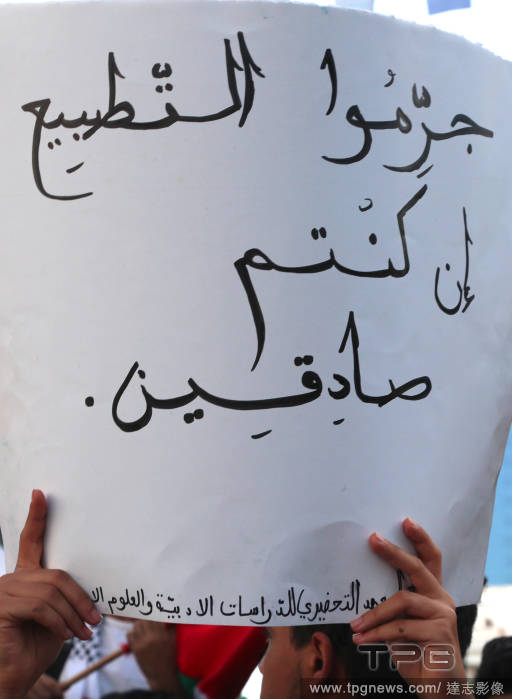 جرِّمُوا التّطبيع
إن كنْتم
صادِقين.
التحضيري للدراسات الادبيّة والعلوم الا
TPG
www.tpgnews.com/達志影像